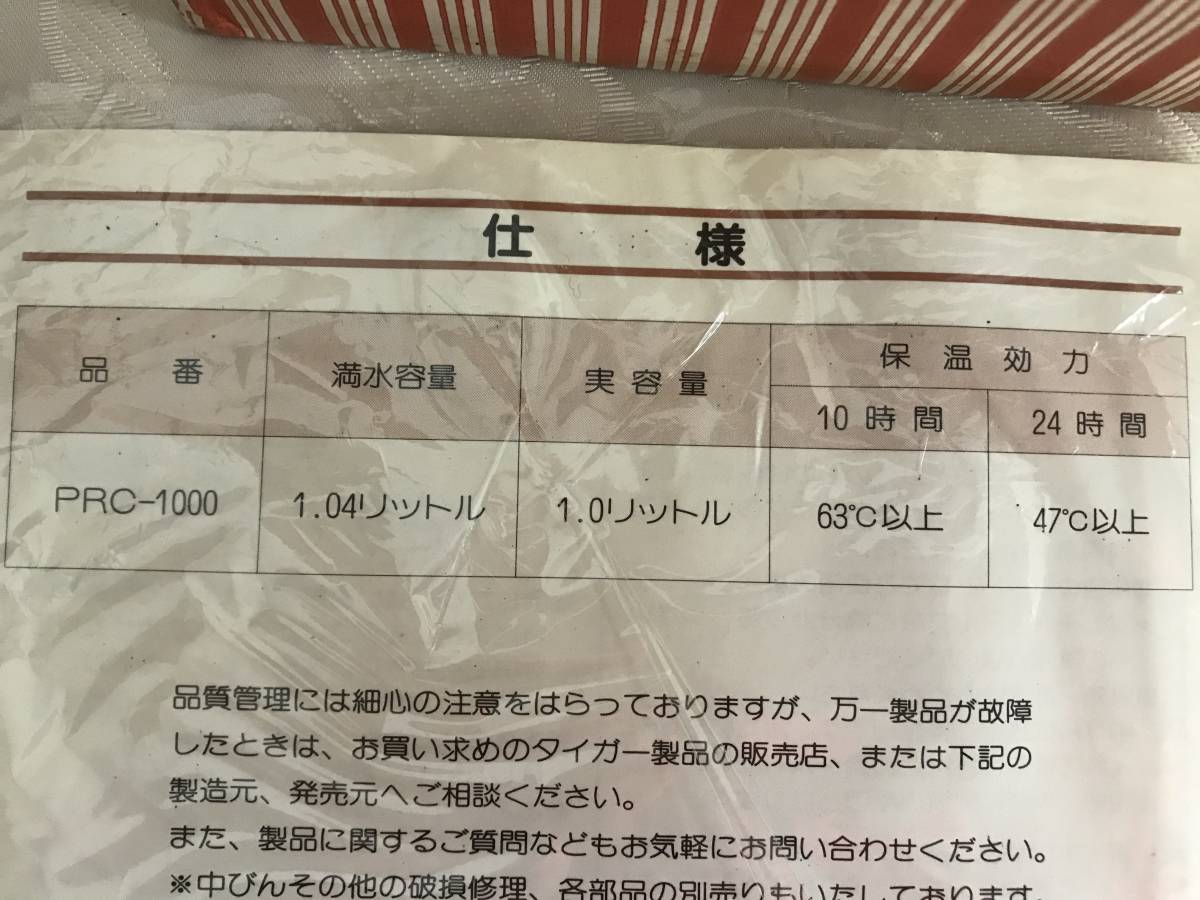 仕様
品番 満水容量 実容量 保温効力
10時間 24時間
PRC-1000 1.04リットル 1.0リットル 63℃以上 47℃以上
品質管理には細心の注意をはらっておりますが、万一製品が故障
したときは、お買い求めのタイガー製品の販売店、または下記の
製造元、発売元へご相談ください。
また、製品に関するご質問などもお気軽にお問い合わせください。
※中びんその他の破損修理、各部品の別売りもいたしております。